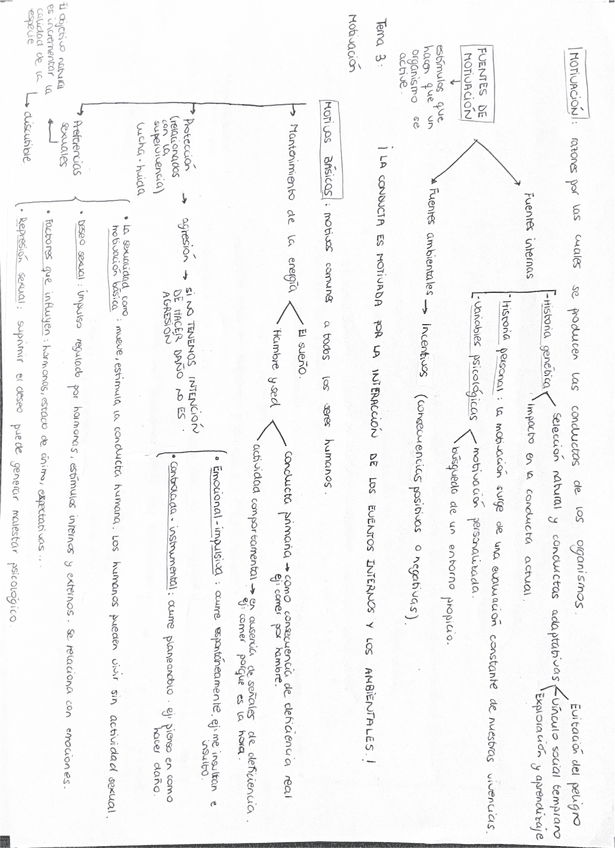 Tema 3:
Motivación
MOTIVACIÓN: razones por las cuales se producen las conductas de los organismos.
FUENTES DE
MOTIVACIÓN
estímulos que
hacen que un
organismo se
active.
Fuentes internas
- Historia genética
Selección natural y conductas adaptativas
Evitación del peligro
Vínculo social temprano
Exploración y aprendizaje
Impacto en la conducta actual.
- Historia personal: la motivación surge de una evaluación constante de nuestras vivencias.
- Variables psicológicas
motivación personalizada.
búsqueda de un entorno propicio.
Fuentes ambientales → Incentivos (consecuencias positivas o negativas).
¡LA CONDUCTA ES MOTIVADA POR LA INTERACCIÓN DE LOS EVENTOS INTERNOS Y LOS AMBIENTALES!
MOTIVOS BÁSICOS: motivos comunes a todos los seres humanos.
→ Mantenimiento de la energía
El sueño.
Hambre y sed
conducta primaria → como consecuencia de deficiencia real
ej: comer por hambre.
actividad comportamental → en ausencia de señales de deficiencia.
ej: comer porque es la hora.
→ Protección
(relacionados
con la
supervivencia)
lucha-huida
→ agresión → SI NO TENEMOS INTENCIÓN
DE HACER DAÑO NO ES
AGRESIÓN
• Emocional-impulsiva: ocurre espontáneamente. ej: me insultan e
insulto.
• Controlada-instrumental: ocurre planeandolo. ej: pienso en como
hacer daño.
→ Preferencias
sexuales
→ discutible
El objetivo natural
es incrementar la
calidad de la
especie
• La sexualidad como
motivación básica: mueve, estimula la conducta humana. Los humanos pueden vivir sin actividad sexual.
• Deseo sexual: impulso regulado por hormonas, estímulos internos y externos. Se relaciona con emociones.
• Factores que influyen: hormonas, estado de ánimo, expectativas...
• Represión sexual: suprimir el deseo puede generar malestar psicológico